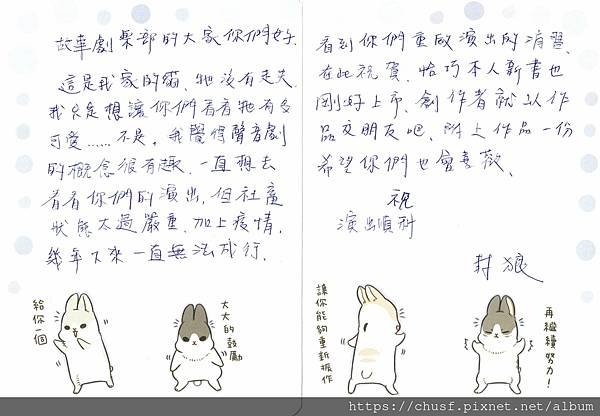 故事劇樂部的大家你們好.
這是我家的貓.牠沒有走失.
我只是想讓你們看看牠有多
可愛……不是。我覺得聲音劇
的概念很有趣、一直想去
看看你們的演出.但社畜
狀態太過嚴重.加上疫情.
幾年下來一直無法成行.
給你一個
大大的鼓勵
看到你們重啟演出的消息
在此祝賀、恰巧本人新書也
剛好上市、創作者就以作
品交朋友吧、附上作品一份
希望你們也會喜歡.
祝
演出順利
封狼
讓你能夠重新振作
再繼續努力!
https://chusf.pixnet.net/album